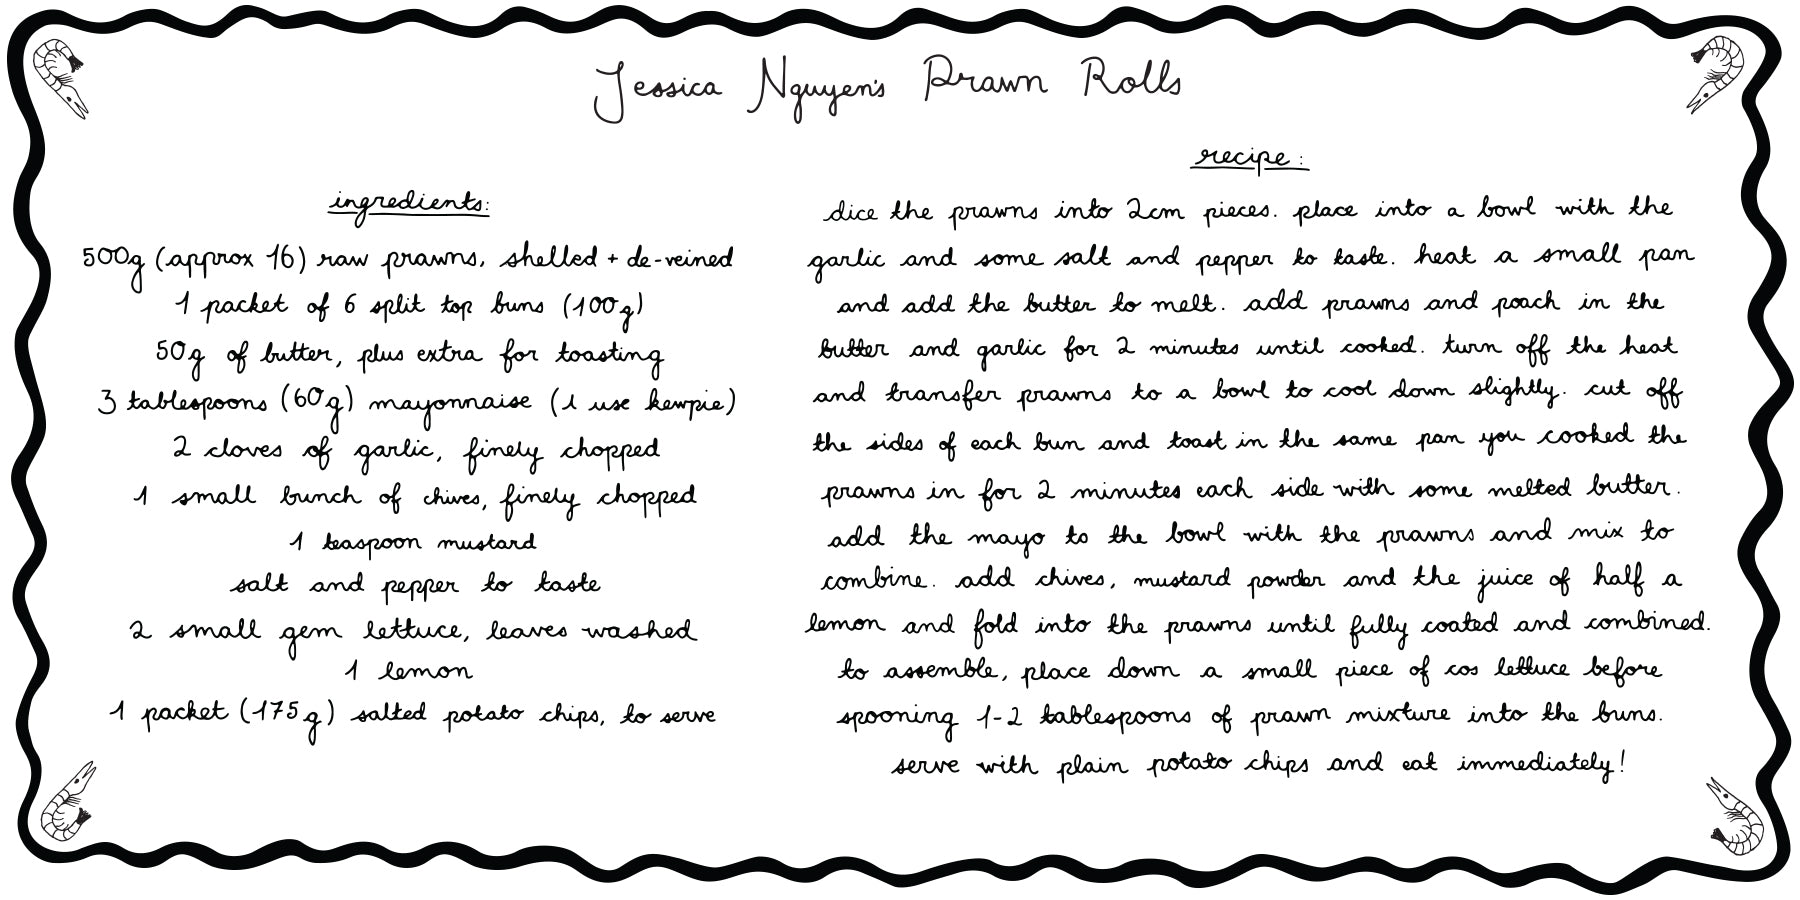 Jessica Nguyen's Prawn Rolls
ingredients:
500g (approx 16) raw prawns, shelled + de-veined
1 packet of 6 split top buns (100g)
50g of butter, plus extra for toasting
3 tablespoons (60g) mayonnaise (i use kewpie)
2 cloves of garlic, finely chopped
1 small bunch of chives, finely chopped
1 teaspoon mustard
salt and pepper to taste
2 small gem lettuce, leaves washed
1 lemon
1 packet (175g) salted potato chips, to serve
recipe:
dice the prawns into 2cm pieces. place into a bowl with the
garlic and some salt and pepper to taste. heat a small pan
and add the butter to melt. add prawns and poach in the
butter and garlic for 2 minutes until cooked. turn off the heat
and transfer prawns to a bowl to cool down slightly. cut off
the sides of each bun and toast in the same pan you cooked the
prawns in for 2 minutes each side with some melted butter.
add the mayo to the bowl with the prawns and mix to
combine. add chives, mustard powder and the juice of half a
lemon and fold into the prawns until fully coated and combined.
to assemble, place down a small piece of cos lettuce before
spooning 1-2 tablespoons of prawn mixture into the buns.
serve with plain potato chips and eat immediately!